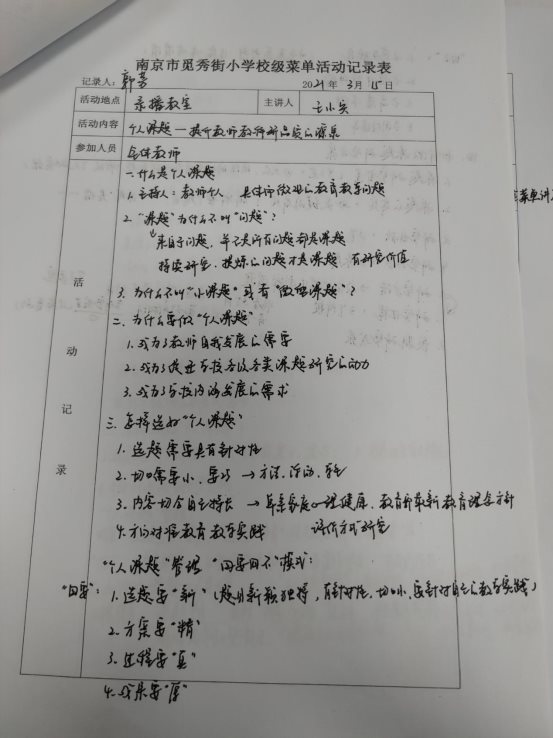 南京市觅秀街小学校级菜单活动记录表
记录人：郭芳 2021年3月15日
活动地点 录播教室 主讲人 王小兵
活动内容 个人课题—提升教师教科研品质的源泉
参加人员 全体教师
活动记录
一.什么是个人课题
1.主持人：教师个人 具体而微观的教育教学问题
2."课题"为什么不叫"问题"？
来自于问题，并不是所有问题都是课题
持续研究、提炼的问题才是课题 有研究价值
3.为什么不叫"小课题"或者"微型课题"？
二.为什么要做"个人课题"
1.成为了教师自我发展的需要
2.成为了促进学校各级各类课题研究的动力
3.成为了学校内涵发展的需求
三.怎样选好"个人课题"
1.选题需要具有针对性
2.切口需要小、要巧 → 方法、活动、
3.内容切合自己特长 → 心理健康、教育 新教育理念方针
4.方向对准教育教学实践 评价方式研究
"个人课题"管理"四要四不"模式：
"四要"：1.选题要"新"（题目新颖独特，有针对性，切口小，要针对自己的教学实践）
2.方案要"精"
3.过程要"真"
4.成果要"厚"
菜单讲